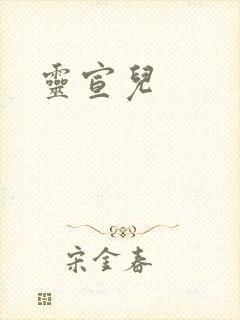 靈宣兒
宋金春